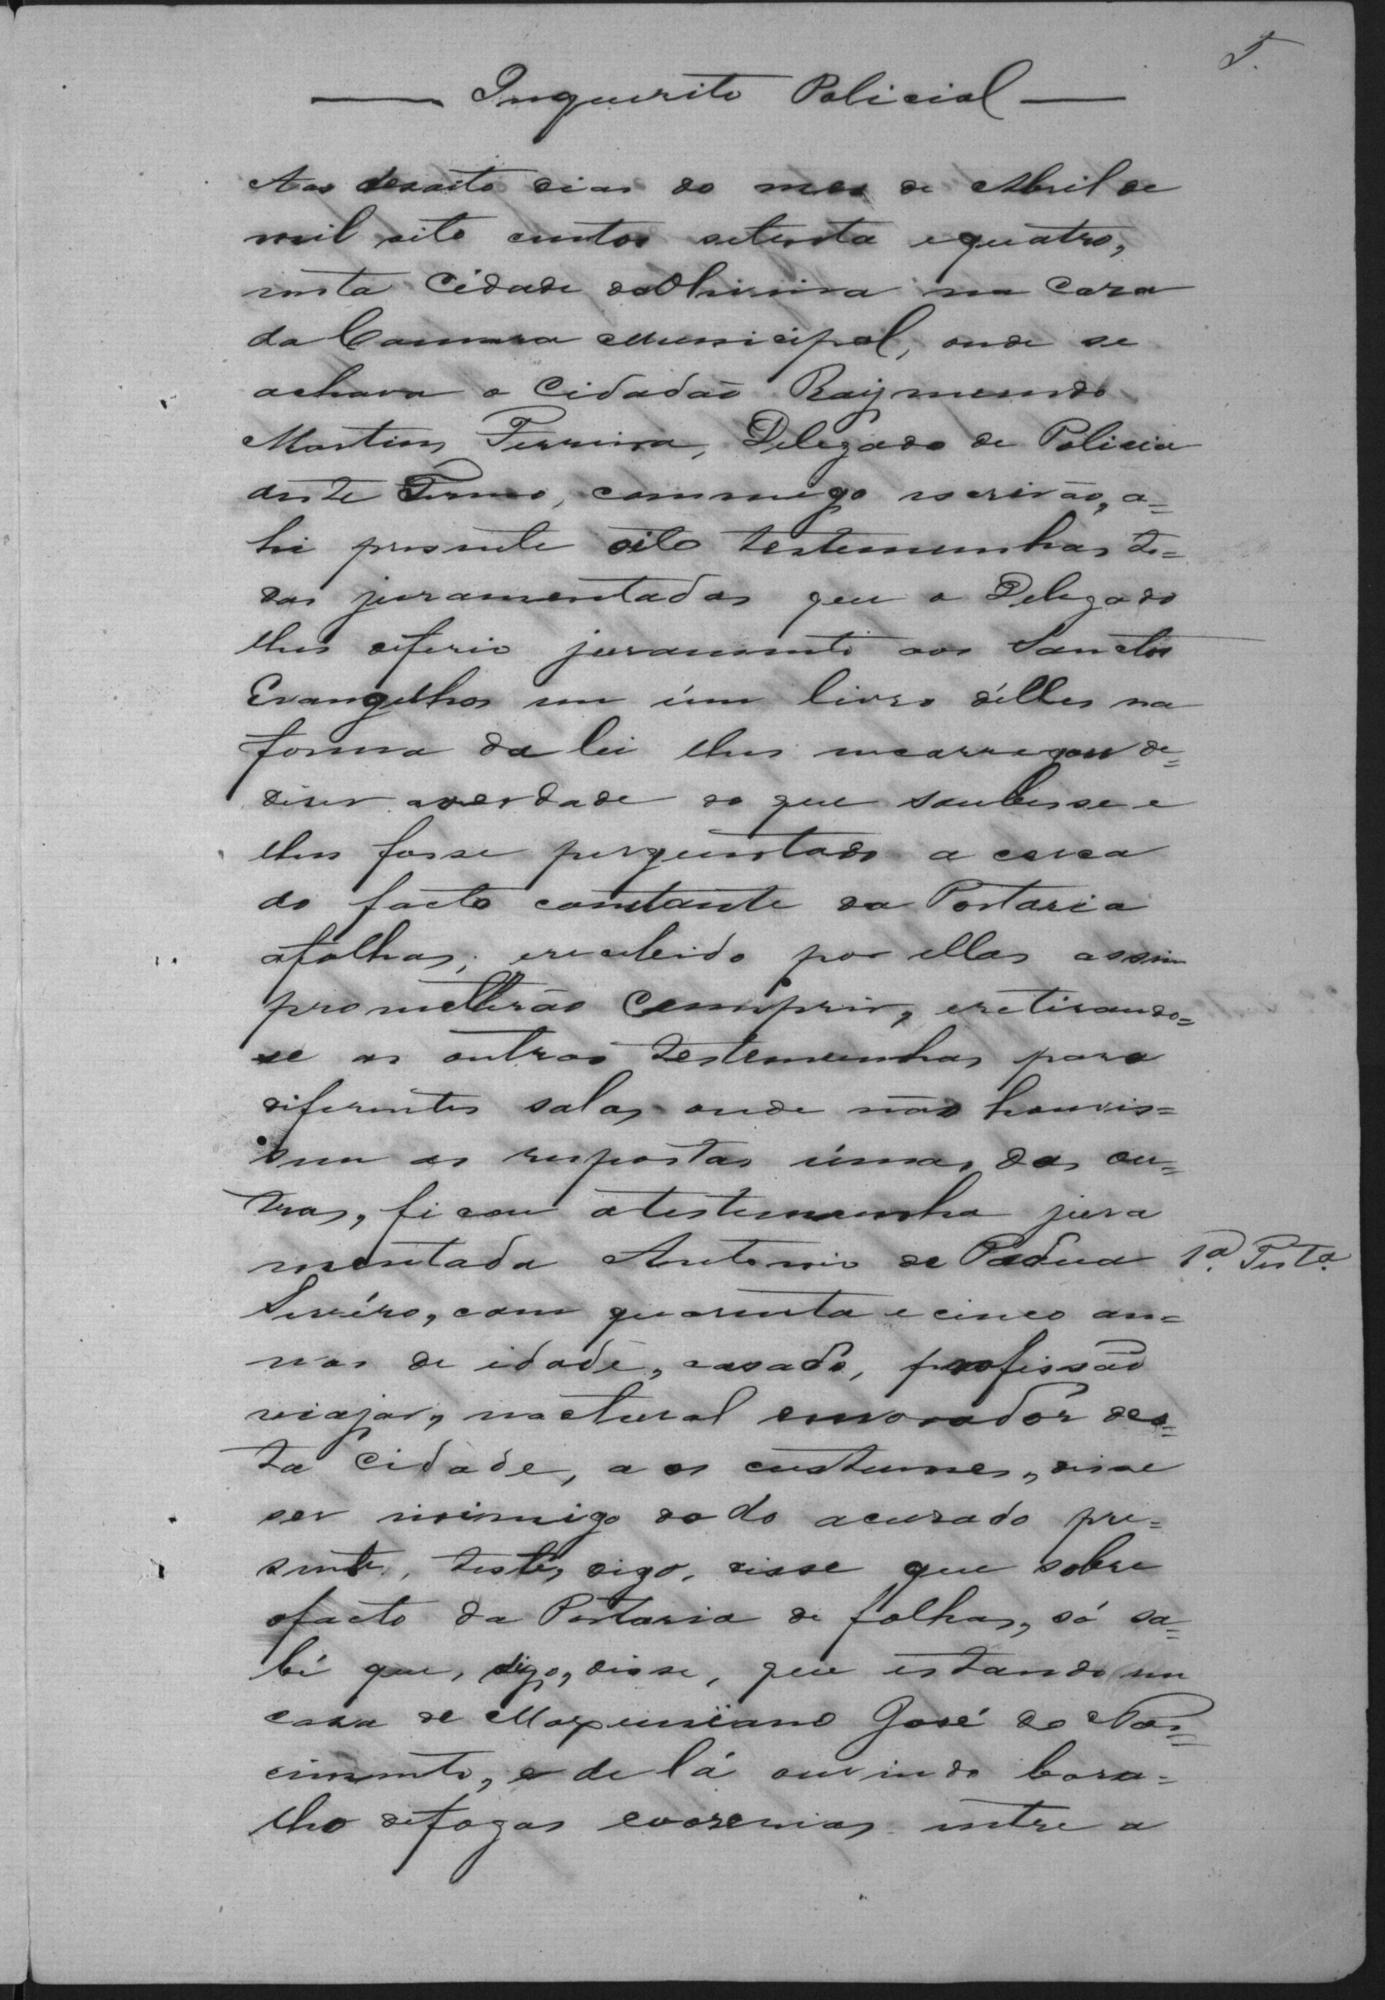 5.
Inquerito Policial
Aos desoito dias do mes de Abril de
mil oito centos setenta equatro,
nesta Cidade da Oliveira na Casa
da Camara Municipal, onde se
achava o Cidadão Raymundo
Martins Ferreira, Delegado de Policia
deste Termo, commigo escrivão, a=
hi presente oito testemunhas to=
das juramentadas que o Delegado
lhes deferio juramento aos Sanctos
Evangelhos em úm livro délles na
forma da lei lhes encarregou de=
diser averdade do que soubesse e
lhes fosse perguntado a cerca
do facto constante da Portaria
afolhas, erecebido por ellas assim
prometterão Cumprir, eretirando=
se as outras testemunhas para
diferentes salas onde não houvis=
sem as respostas úmas das ou=
tras, ficou atestemunha jura
mentada Antonio de Padua
1ª. Testª.
Sevéro, com quarenta e cinco an=
nos de idade, casado, profissão
viajar, nactural emorador des=
ta Cidade, a os custumes, disse
ser inimigo do do acusado pre=
sente, teste, digo, disse que sobre
ofacto da Portaria de folhas, só sa=
bé que, digo, disse, que estando em
casa de Maxemiano José do Nas=
cimento, e de lá ouvindo bara=
lho defogas entre a